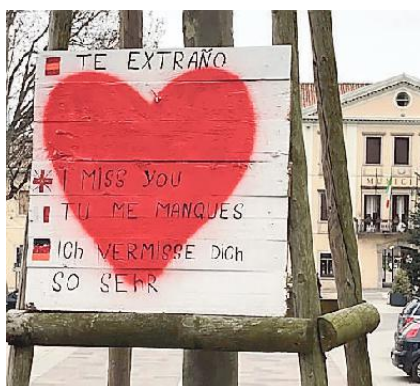 TE EXTRAÑO
I MISS YOU
TU ME MANQUES
ICH VERMISSE DICH
SO SEHR